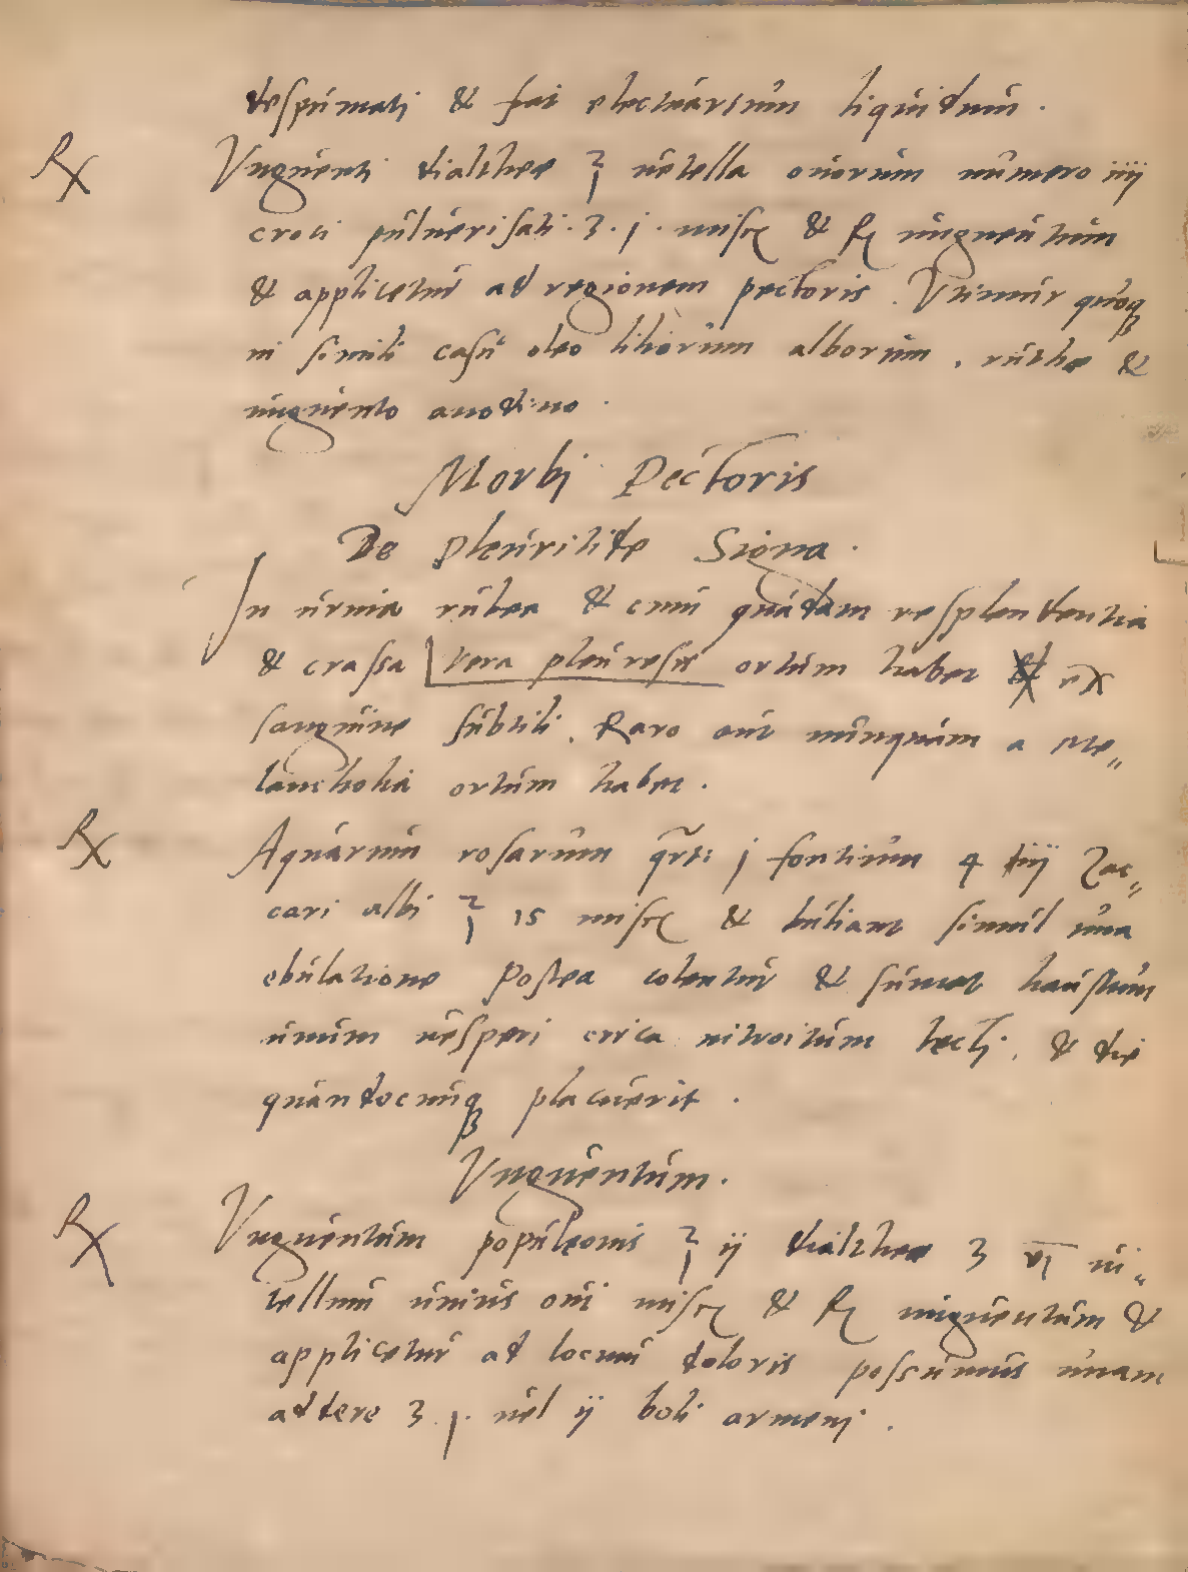 despumati & fiat electuarium liquidum .
℞ Vnguenti dialthee ℥ j uitella ouorum numero iiij
croci puluerisati . ʒ . j . misce & f unguentum
& applicetur ad regionem pectoris . Vtimur quoq
in simili casu oleo liliorum alborum , ruthe &
unguento anodino .
Morbi Pectoris
De pleuritide Signa .
In urina rubea & cum quadam resplendentia
& crassa vera pleuresis ortum habet & ex
sanguine subtili . Raro aut nunquam a Me„
lancholia ortum habet .
℞ Aquarum rosarum qrt: j fontium 4 iiij Zac„
cari albi ℥ 15 misce & buliant simul una
ebulatione Postea colentur & sumat haustum
unum uesperi circa introitum lecti . & die
quandocunq placuerit .
Vnguentum .
℞ Vnguentum populeonis ℥ ij dialthee ʒ vj ui„
tellum unius oui misce & f unguentum &
applicetur ad locum doloris possumus unam
addere ʒ j . uel ij boli armenj .